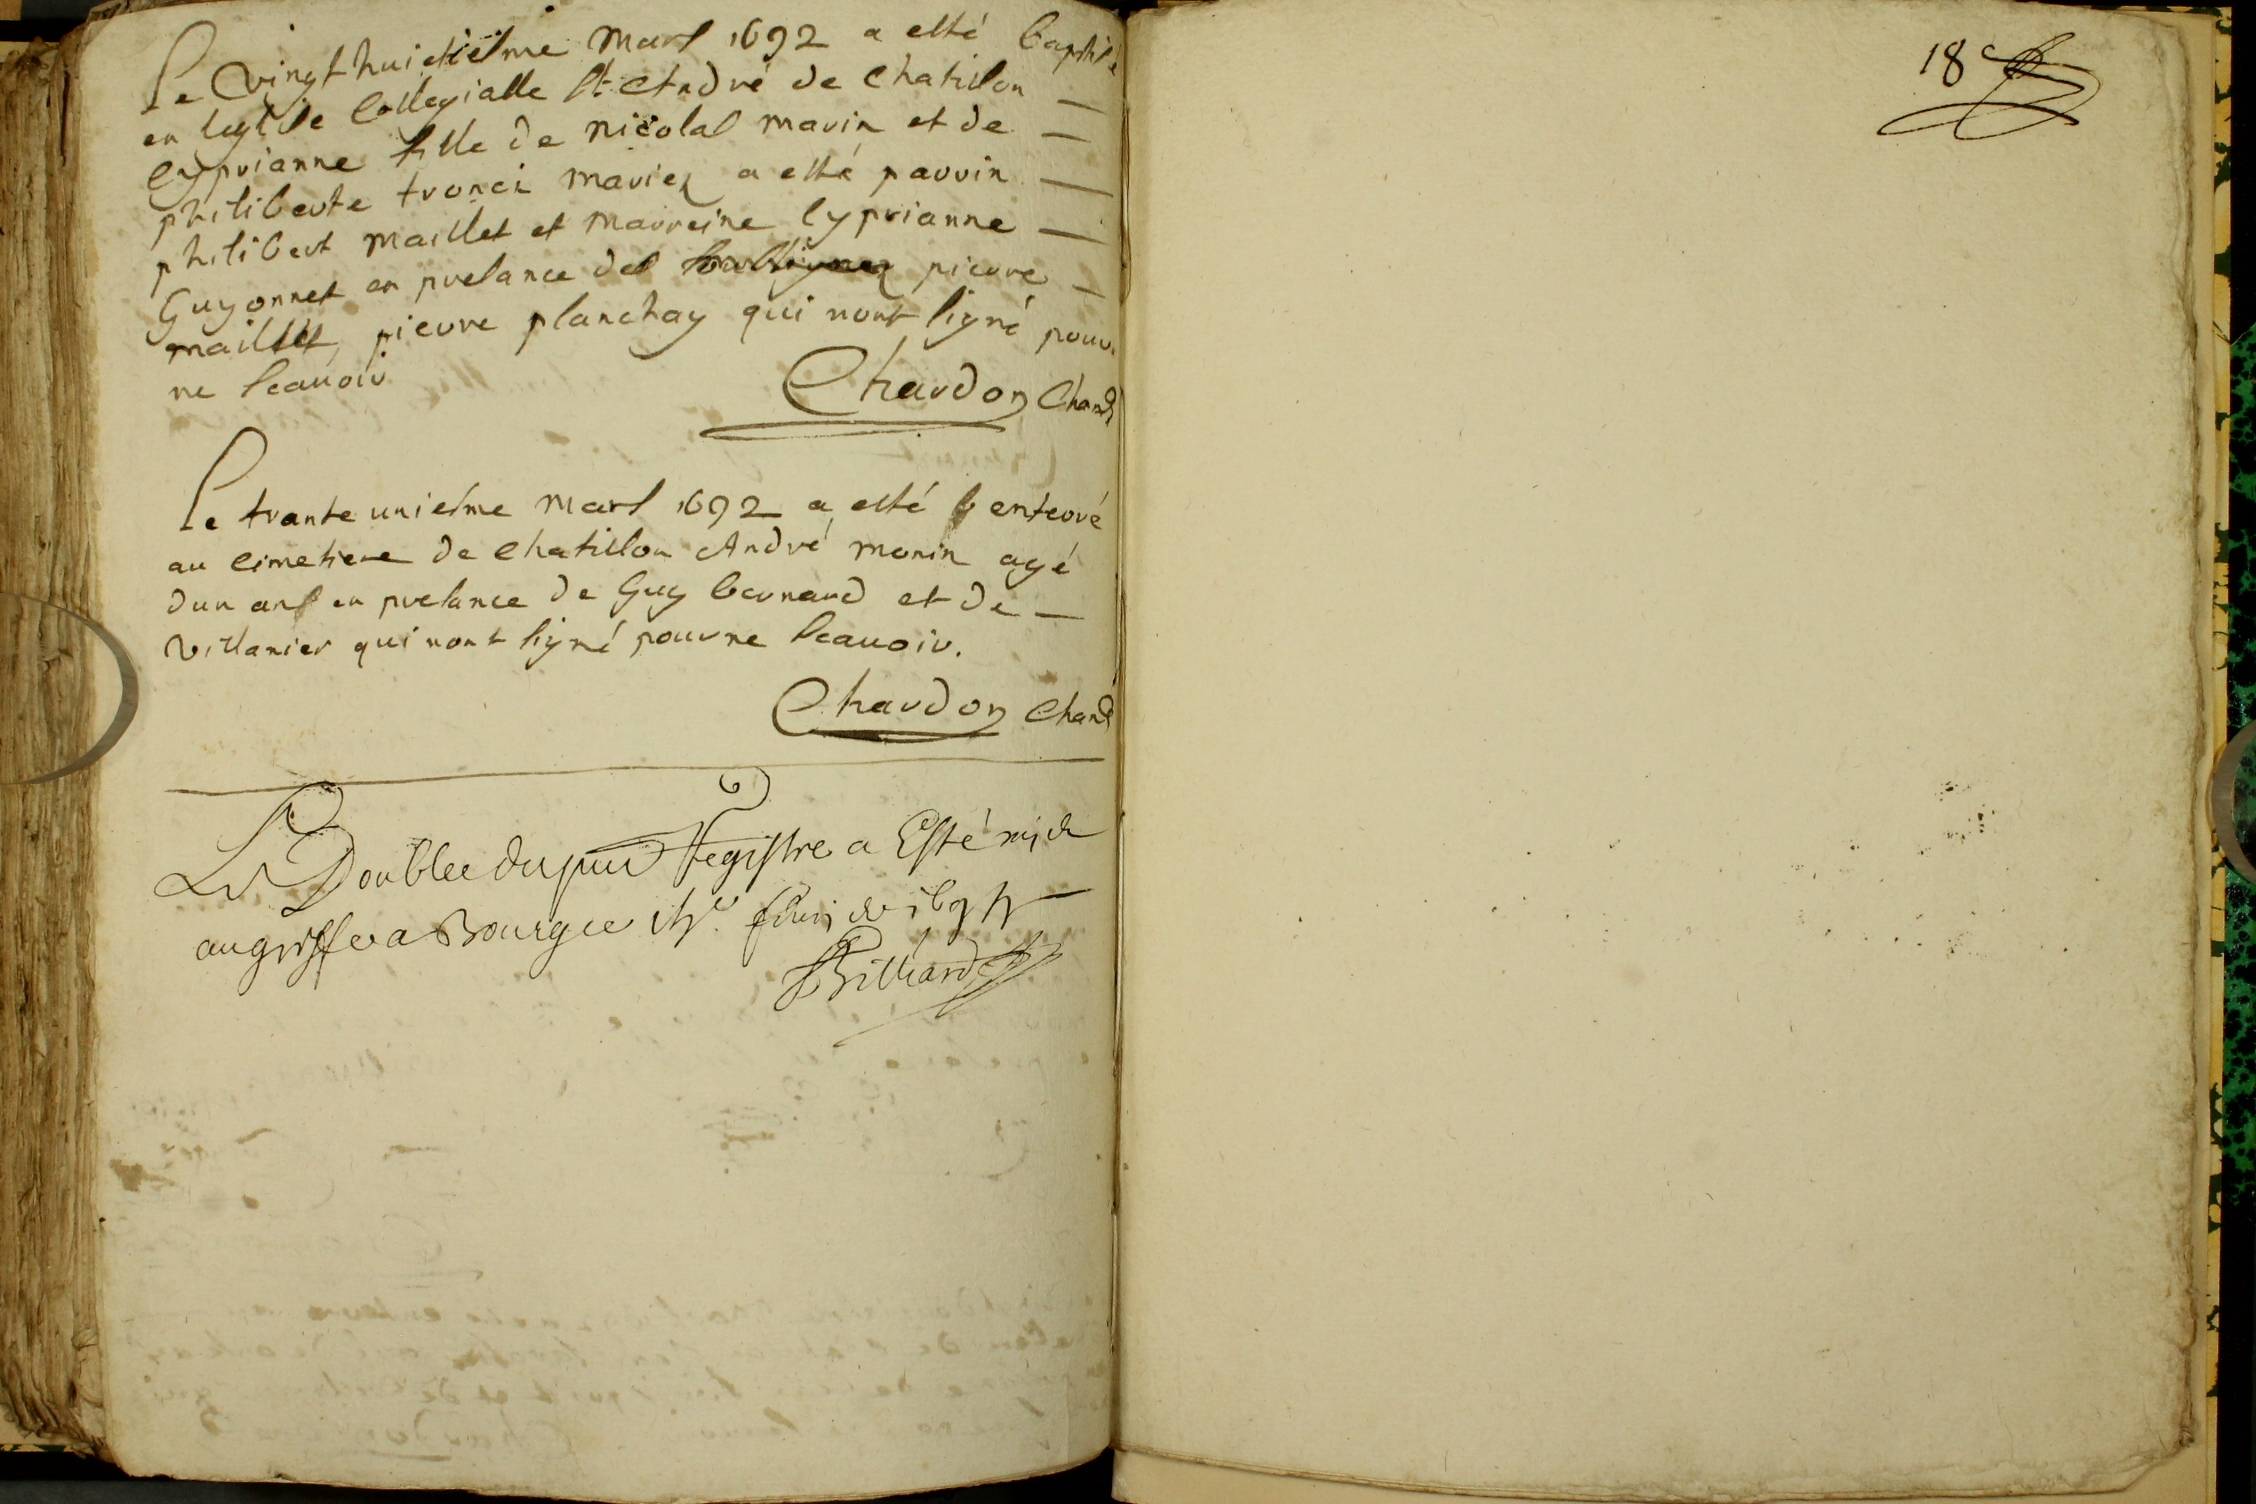 Le vingt huictiesme Mars 1692 a esté baptisé
en leglise Collegialle St André de Chatillon
Cyprianne fille de nicolas marin et de
philiberte tronci mariez a esté parrin
philibert maillet et marreine Cyprianne
Guyonnet en presance des pierre
maillet, pierre planchay qui nont signé pour
ne scauoir
Chardon Chane
Le trante uniesme Mars 1692 a esté enterré
au Cimetiere de Chatillon André monin agé
dun ans en presance de Guy bernard et de
villanier qui nont signé pour ne scauoir.
Chardon Chane
Le Double du pnt Registre a Esté mis
au greffe a Bourges
Billiard
18